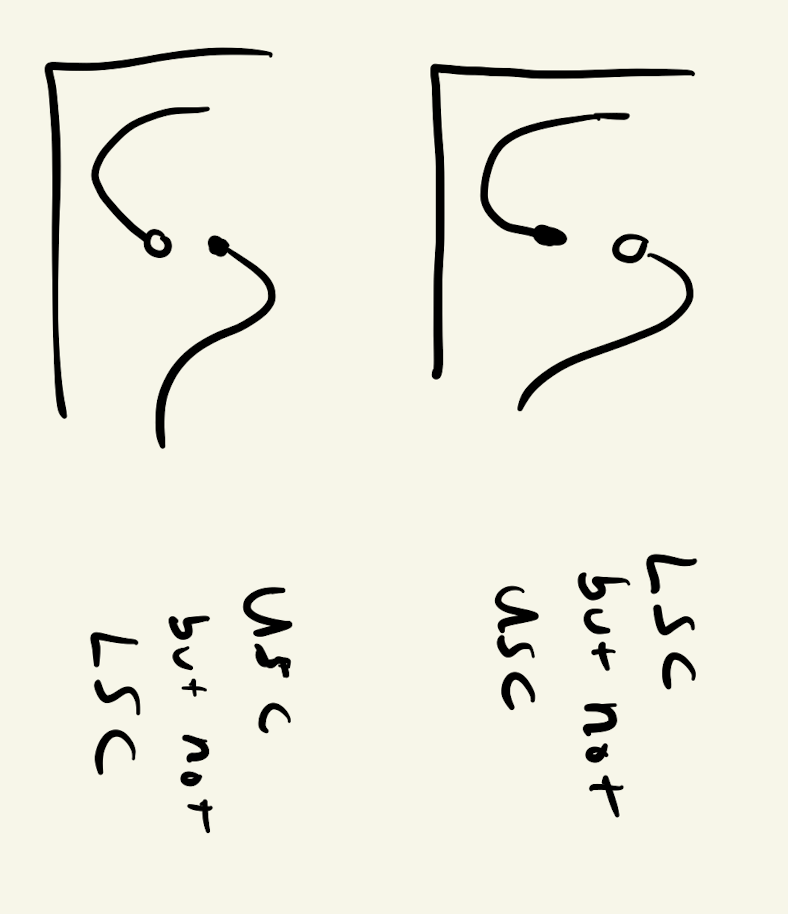 LSC
but not
USC
USC
but not
LSC